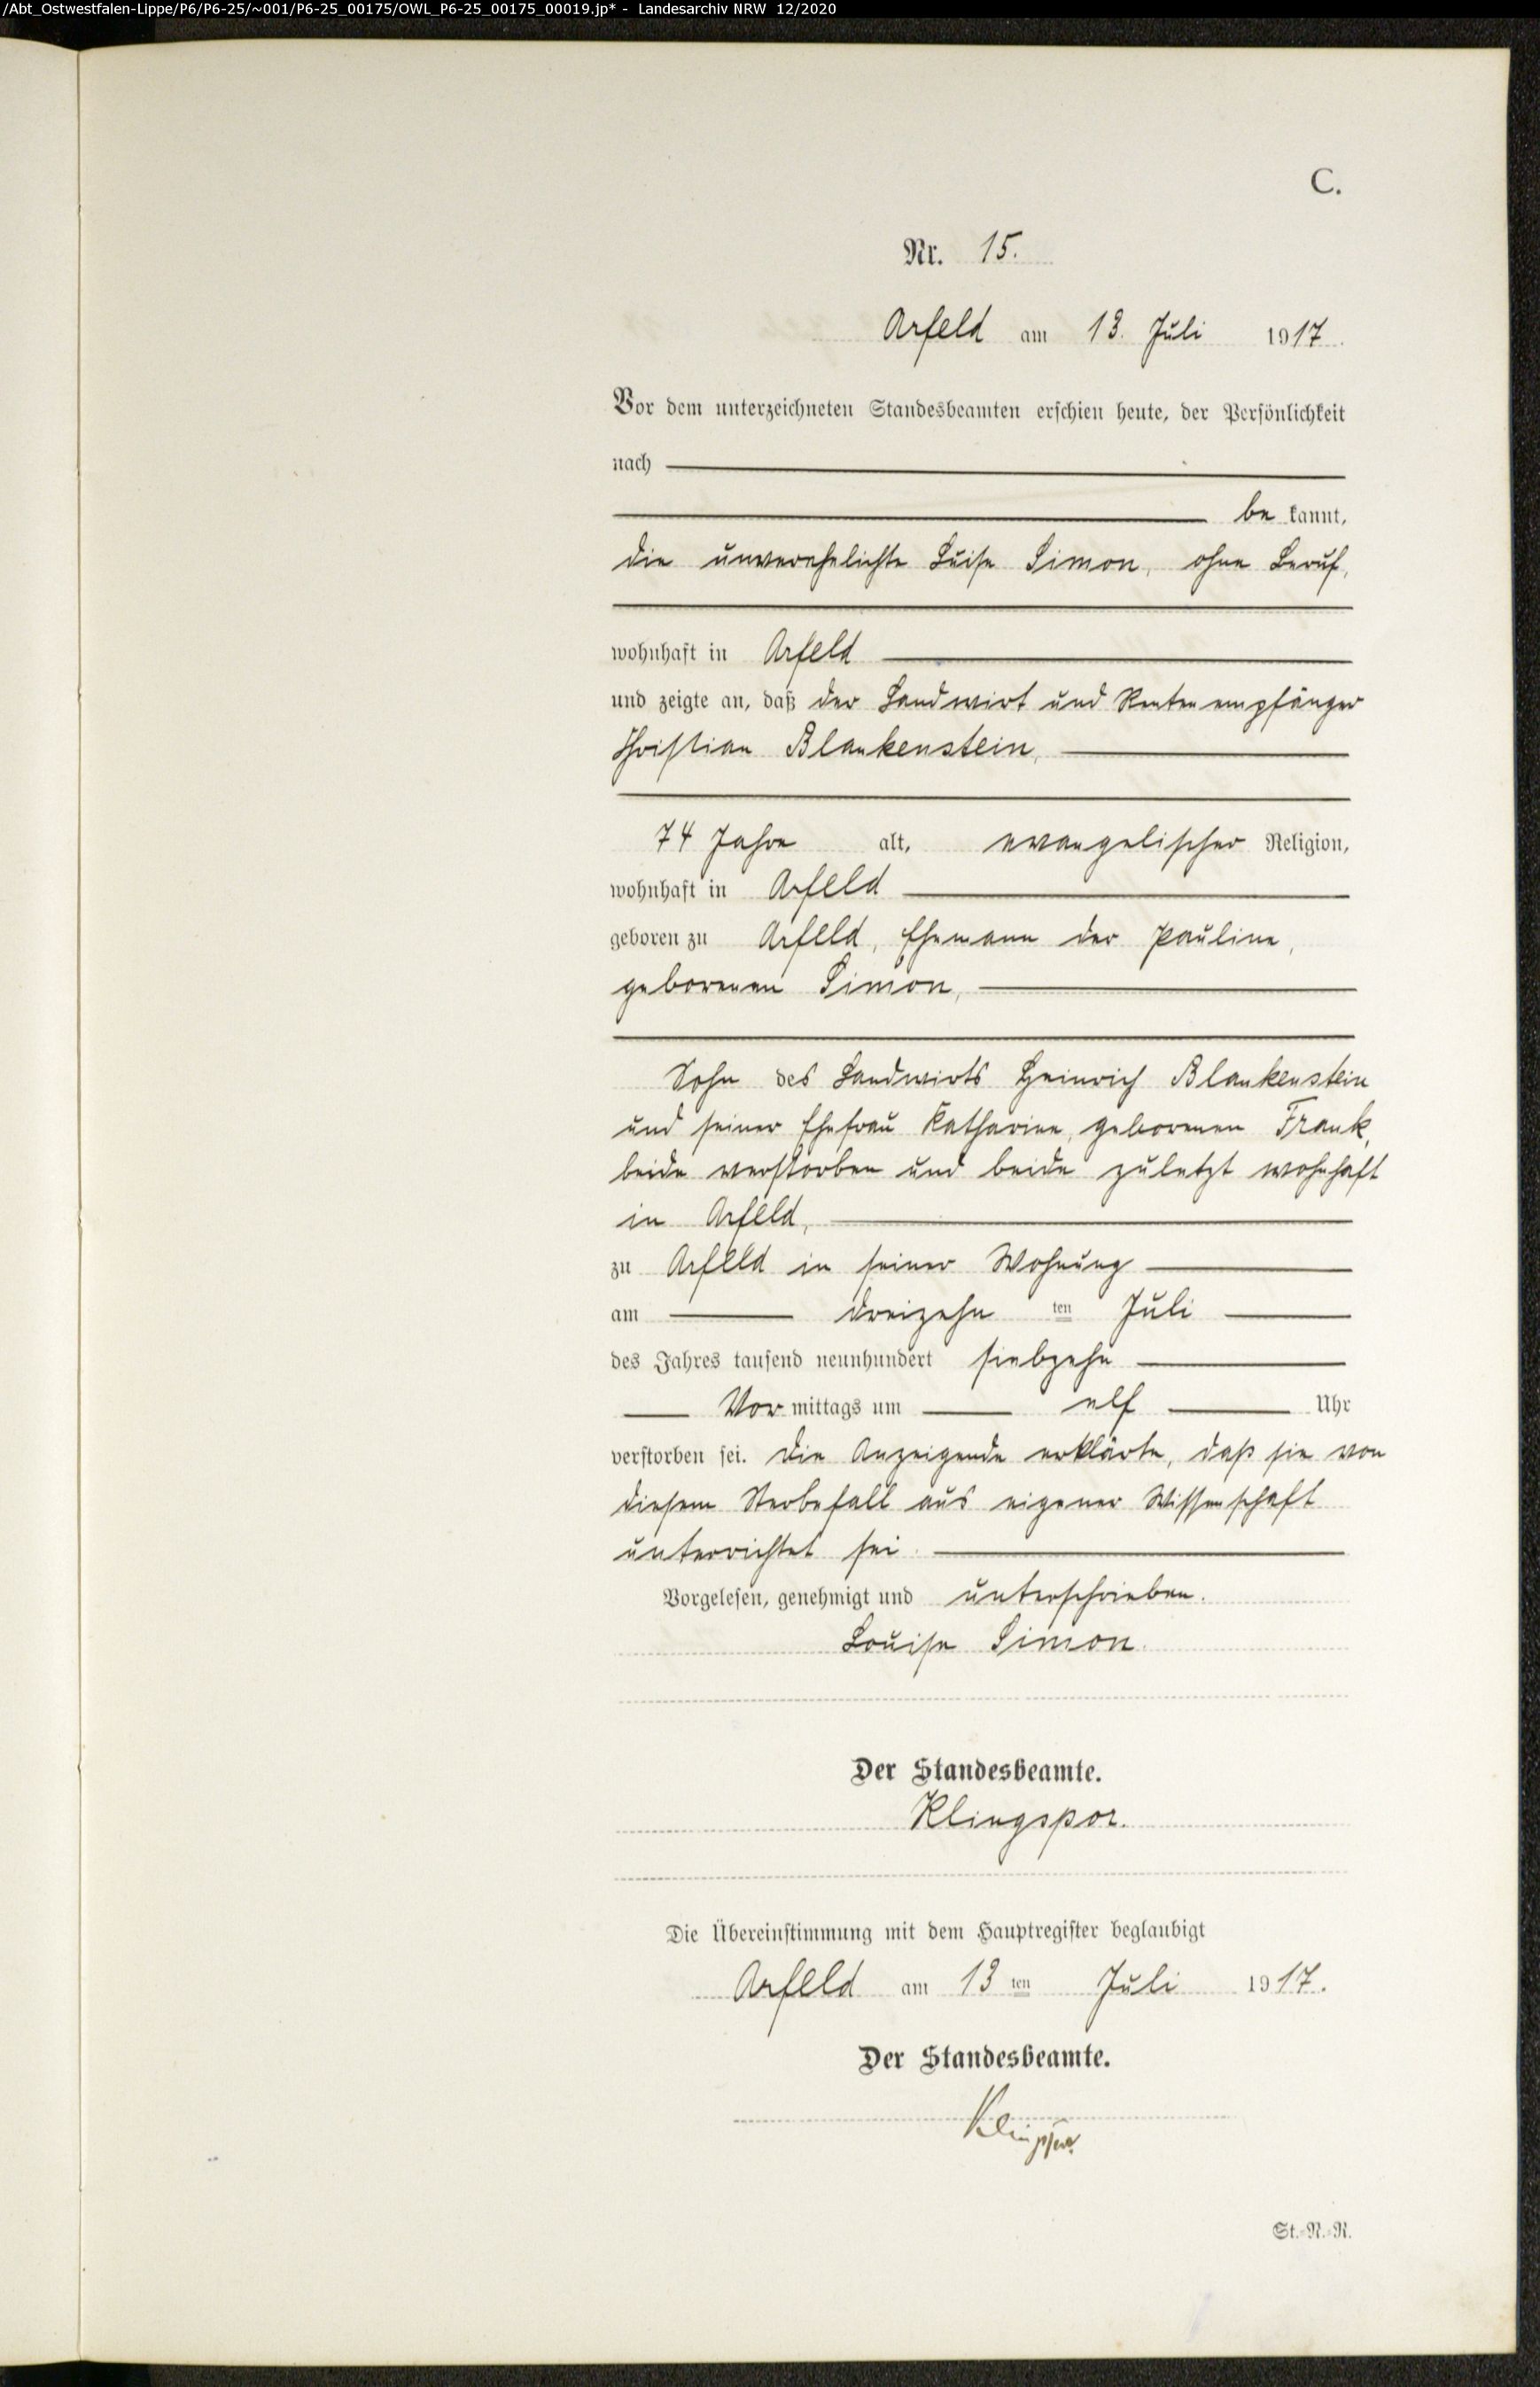 /Abt_Ostwestfalen-Lippe/P6/P6-25/~001/P6-25_00175/OWL_P6-25_00175_00019.jp* - Landesarchiv NRW 12/2020
C.
Nr. 15.
Arfeld am 13. Juli 1917.
Vor dem unterzeichneten Standesbeamten erschien heute, der Persönlichkeit
nach
be kannt,
die unverehelichte Luise Simon, ohne Beruf,
wohnhaft in Arfeld
und zeigte an, daß der Landwirt und Rentenempfänger
Christian Blankenstein,
74 Jahre alt, evangelischer Religion,
wohnhaft in Arfeld
geboren zu Arfeld, Ehemann der Pauline,
geborenen Simon,
Sohn des Landwirts Heinrich Blankenstein
und seiner Ehefrau Katharine, geborenen Frank,
beide verstorben und beide zuletzt wohnhaft
in Arfeld,
zu Arfeld in seiner Wohnung
am dreizehn ten Juli
des Jahres tausend neunhundert siebzehn
Vor mittags um elf Uhr
verstorben sei. Die Anzeigende erklärte, daß sie von
diesem Sterbefall aus eigener Wissenschaft
unterrichtet sei.
Vorgelesen, genehmigt und unterschrieben.
Louise Simon.
Der Standesbeamte.
Klingspor.
Die Übereinstimmung mit dem Hauptregister beglaubigt
Arfeld am 13 ten Juli 1917.
Der Standesbeamte.
Klingspor
St.-N.-R.